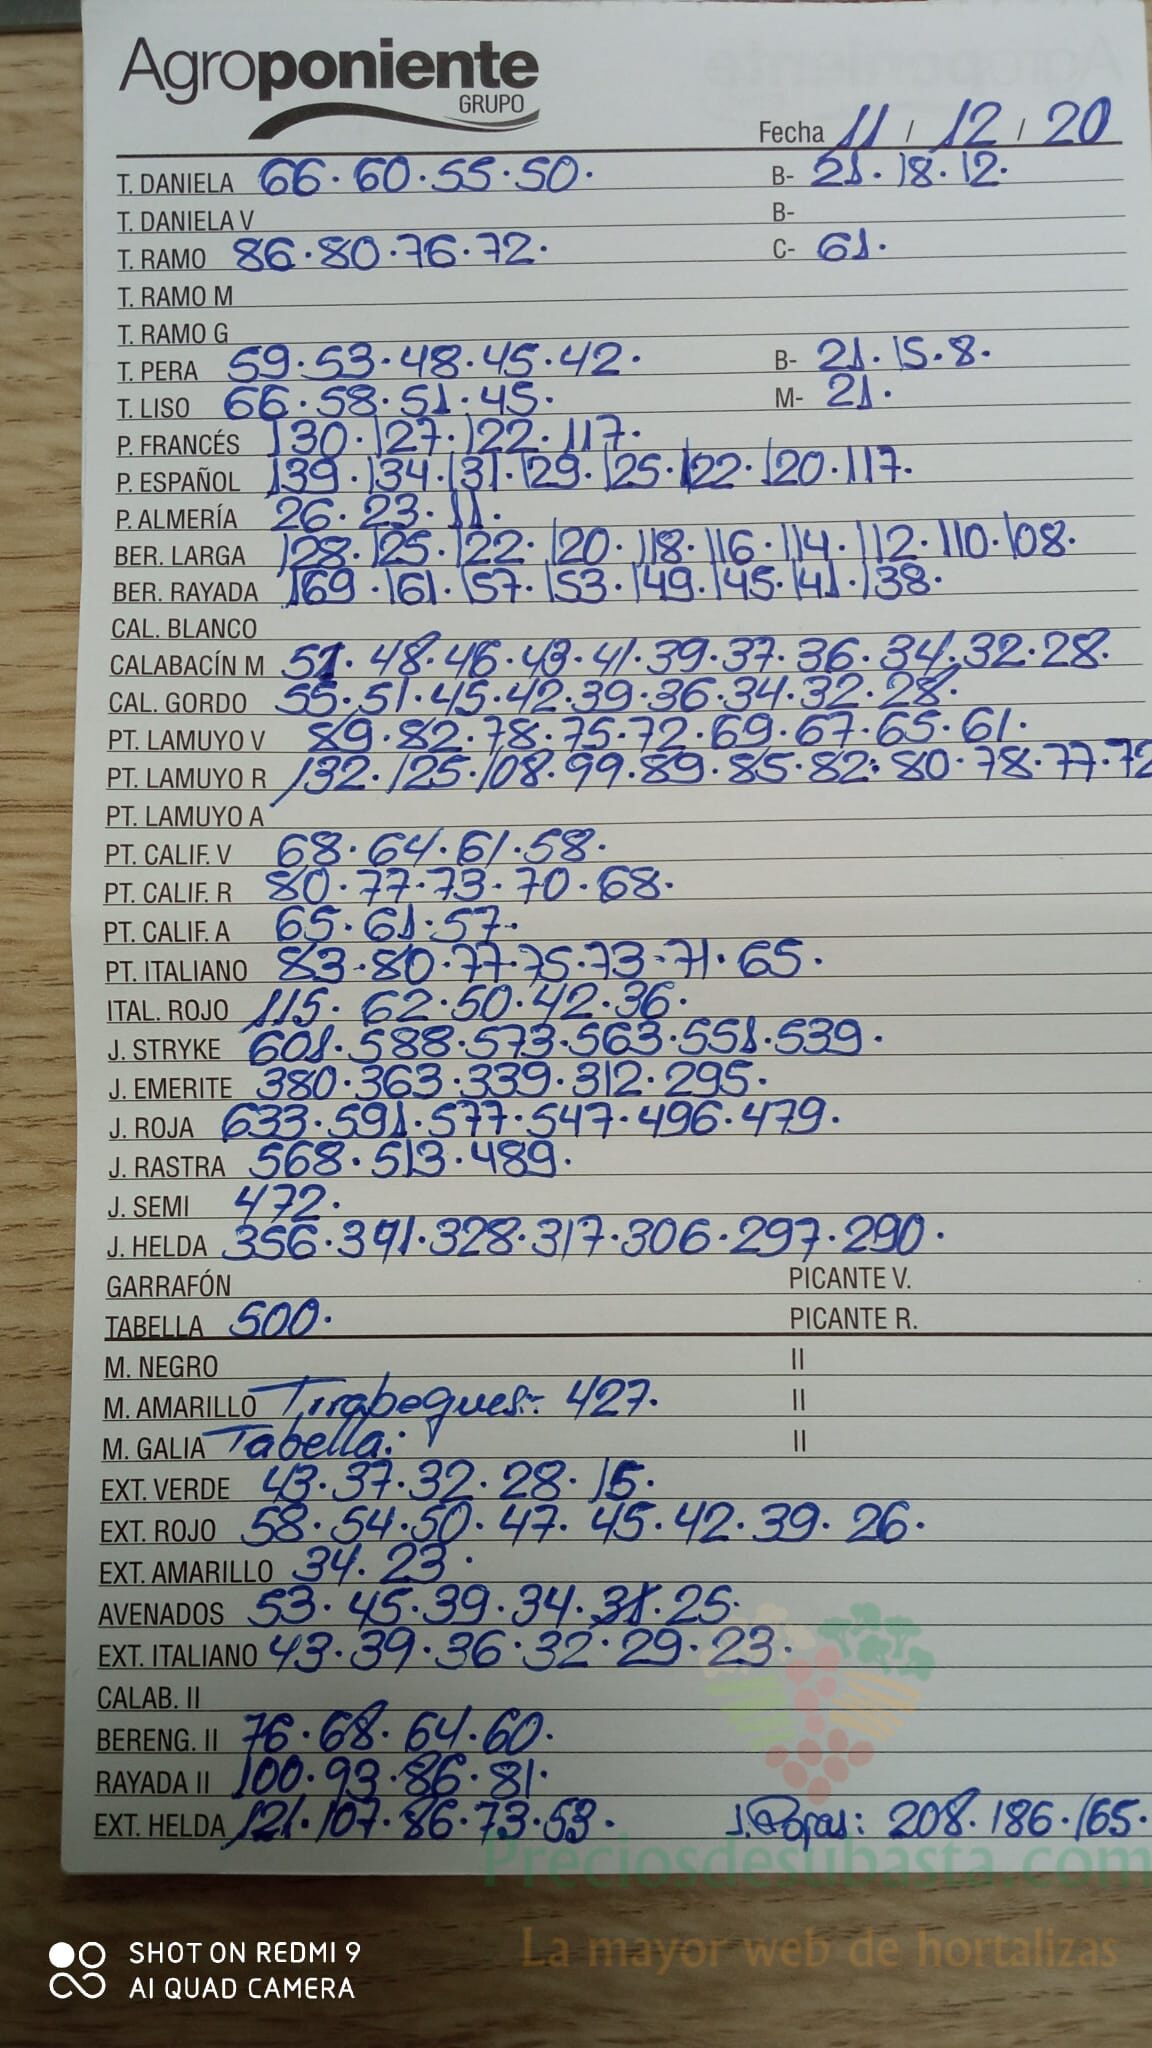 Agroponiente
GRUPO
Fecha 11 / 12 / 20
T. DANIELA 66.60.55.50. B- 21.18.12.
T. DANIELA V B-
T. RAMO 86.80.76.72. C- 61.
T. RAMO M
T. RAMO G
T. PERA 59.53.48.45.42. B- 21.15.8.
T. LISO 66.58.51.45. M- 21.
P. FRANCÉS 130.127.122.117.
P. ESPAÑOL 139.134.131.129.125.122.120.117.
P. ALMERÍA 26.23.11.
BER. LARGA 128.125.122.120.118.116.114.112.110.108.
BER. RAYADA 169.161.157.153.149.145.141.138.
CAL. BLANCO
CALABACÍN M 51.48.46.43.41.39.37.36.34.32.28.
CAL. GORDO 55.51.45.42.39.36.34.32.28.
PT. LAMUYO V 89.82.78.75.72.69.67.65.61.
PT. LAMUYO R 132.125.108.99.89.85.82.80.78.77.72
PT. LAMUYO A
PT. CALIF. V 68.64.61.58.
PT. CALIF. R 80.77.73.70.68.
PT. CALIF. A 65.61.57.
PT. ITALIANO 83.80.77.75.73.71.65.
ITAL. ROJO 115.62.50.42.36.
J. STRYKE 601.588.573.563.551.539.
J. EMERITE 380.363.339.312.295.
J. ROJA 633.591.577.547.496.479.
J. RASTRA 568.513.489.
J. SEMI 472.
J. HELDA 356.341.328.317.306.297.290.
GARRAFÓN PICANTE V.
TABELLA 500. PICANTE R.
M. NEGRO II
M. AMARILLO Tirabeques: 427. II
M. GALIA Tabella: II
EXT. VERDE 43.37.32.28.15.
EXT. ROJO 58.54.50.47.45.42.39.26.
EXT. AMARILLO 34.23.
AVENADOS 53.45.39.34.31.25.
EXT. ITALIANO 43.39.36.32.29.23.
CALAB. II
BERENG. II 76.68.64.60.
RAYADA II 100.93.86.81.
EXT. HELDA 121.107.86.73.53. 208.186.165.
Preciosdesubasta.com
La mayor web de hortalizas
SHOT ON REDMI 9
AI QUAD CAMERA